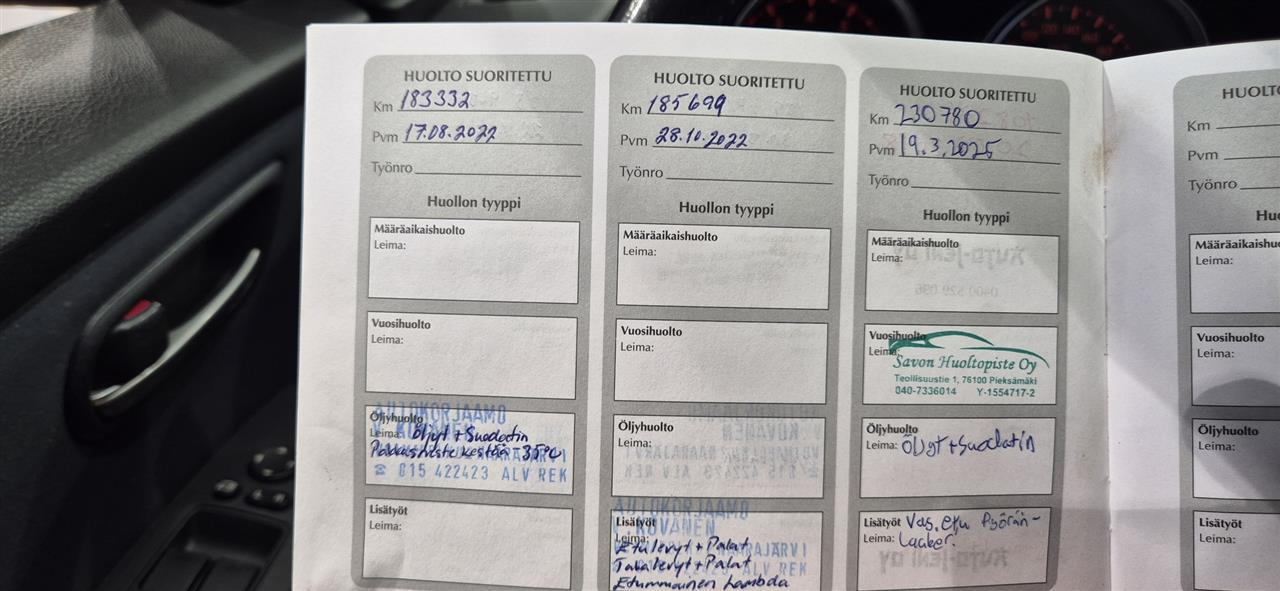 HUOLTO SUORITETTU
Km 183332
Pvm 17.08.2022
Työnro
Huollon tyyppi
Määräaikaishuolto
Leima:
Vuosihuolto
Leima:
AUTOKORJAAMO
Öljyhuolto
V KOVANEN
Leima: Öljyt + Suodatin
Pakkasneste kestää -35°C
☎ 015 422423 ALV REK
Lisätyöt
Leima:
HUOLTO SUORITETTU
Km 185699
Pvm 28.10.2022
Työnro
Huollon tyyppi
Määräaikaishuolto
Leima:
Vuosihuolto
Leima:
Öljyhuolto
Leima:
AUTOKORJAAMO
Lisätyöt
V KOVANEN
Leima:
Etulevyt + Palat
Takalevyt + Palat
ALV REK
Etummainen Lambda
HUOLTO SUORITETTU
Km 230780
Pvm 19.3.2025
Työnro
Huollon tyyppi
Määräaikaishuolto
Leima:
Vuosihuolto
Leima:
Savon Huoltopiste Oy
Teollisuustie 1, 76100 Pieksämäki
040-7336014 Y-1554717-2
Öljyhuolto
Leima: Öljyt + Suodatin
Lisätyöt Vas. etu Pyörän-
Leima: Laakeri
HUOLT
Km
Pvm
Työnro
Hu
Määräaikaishu
Leima:
Vuosihuolto
Leima:
Öljyhuolto
Leima:
Lisätyöt
Leima: